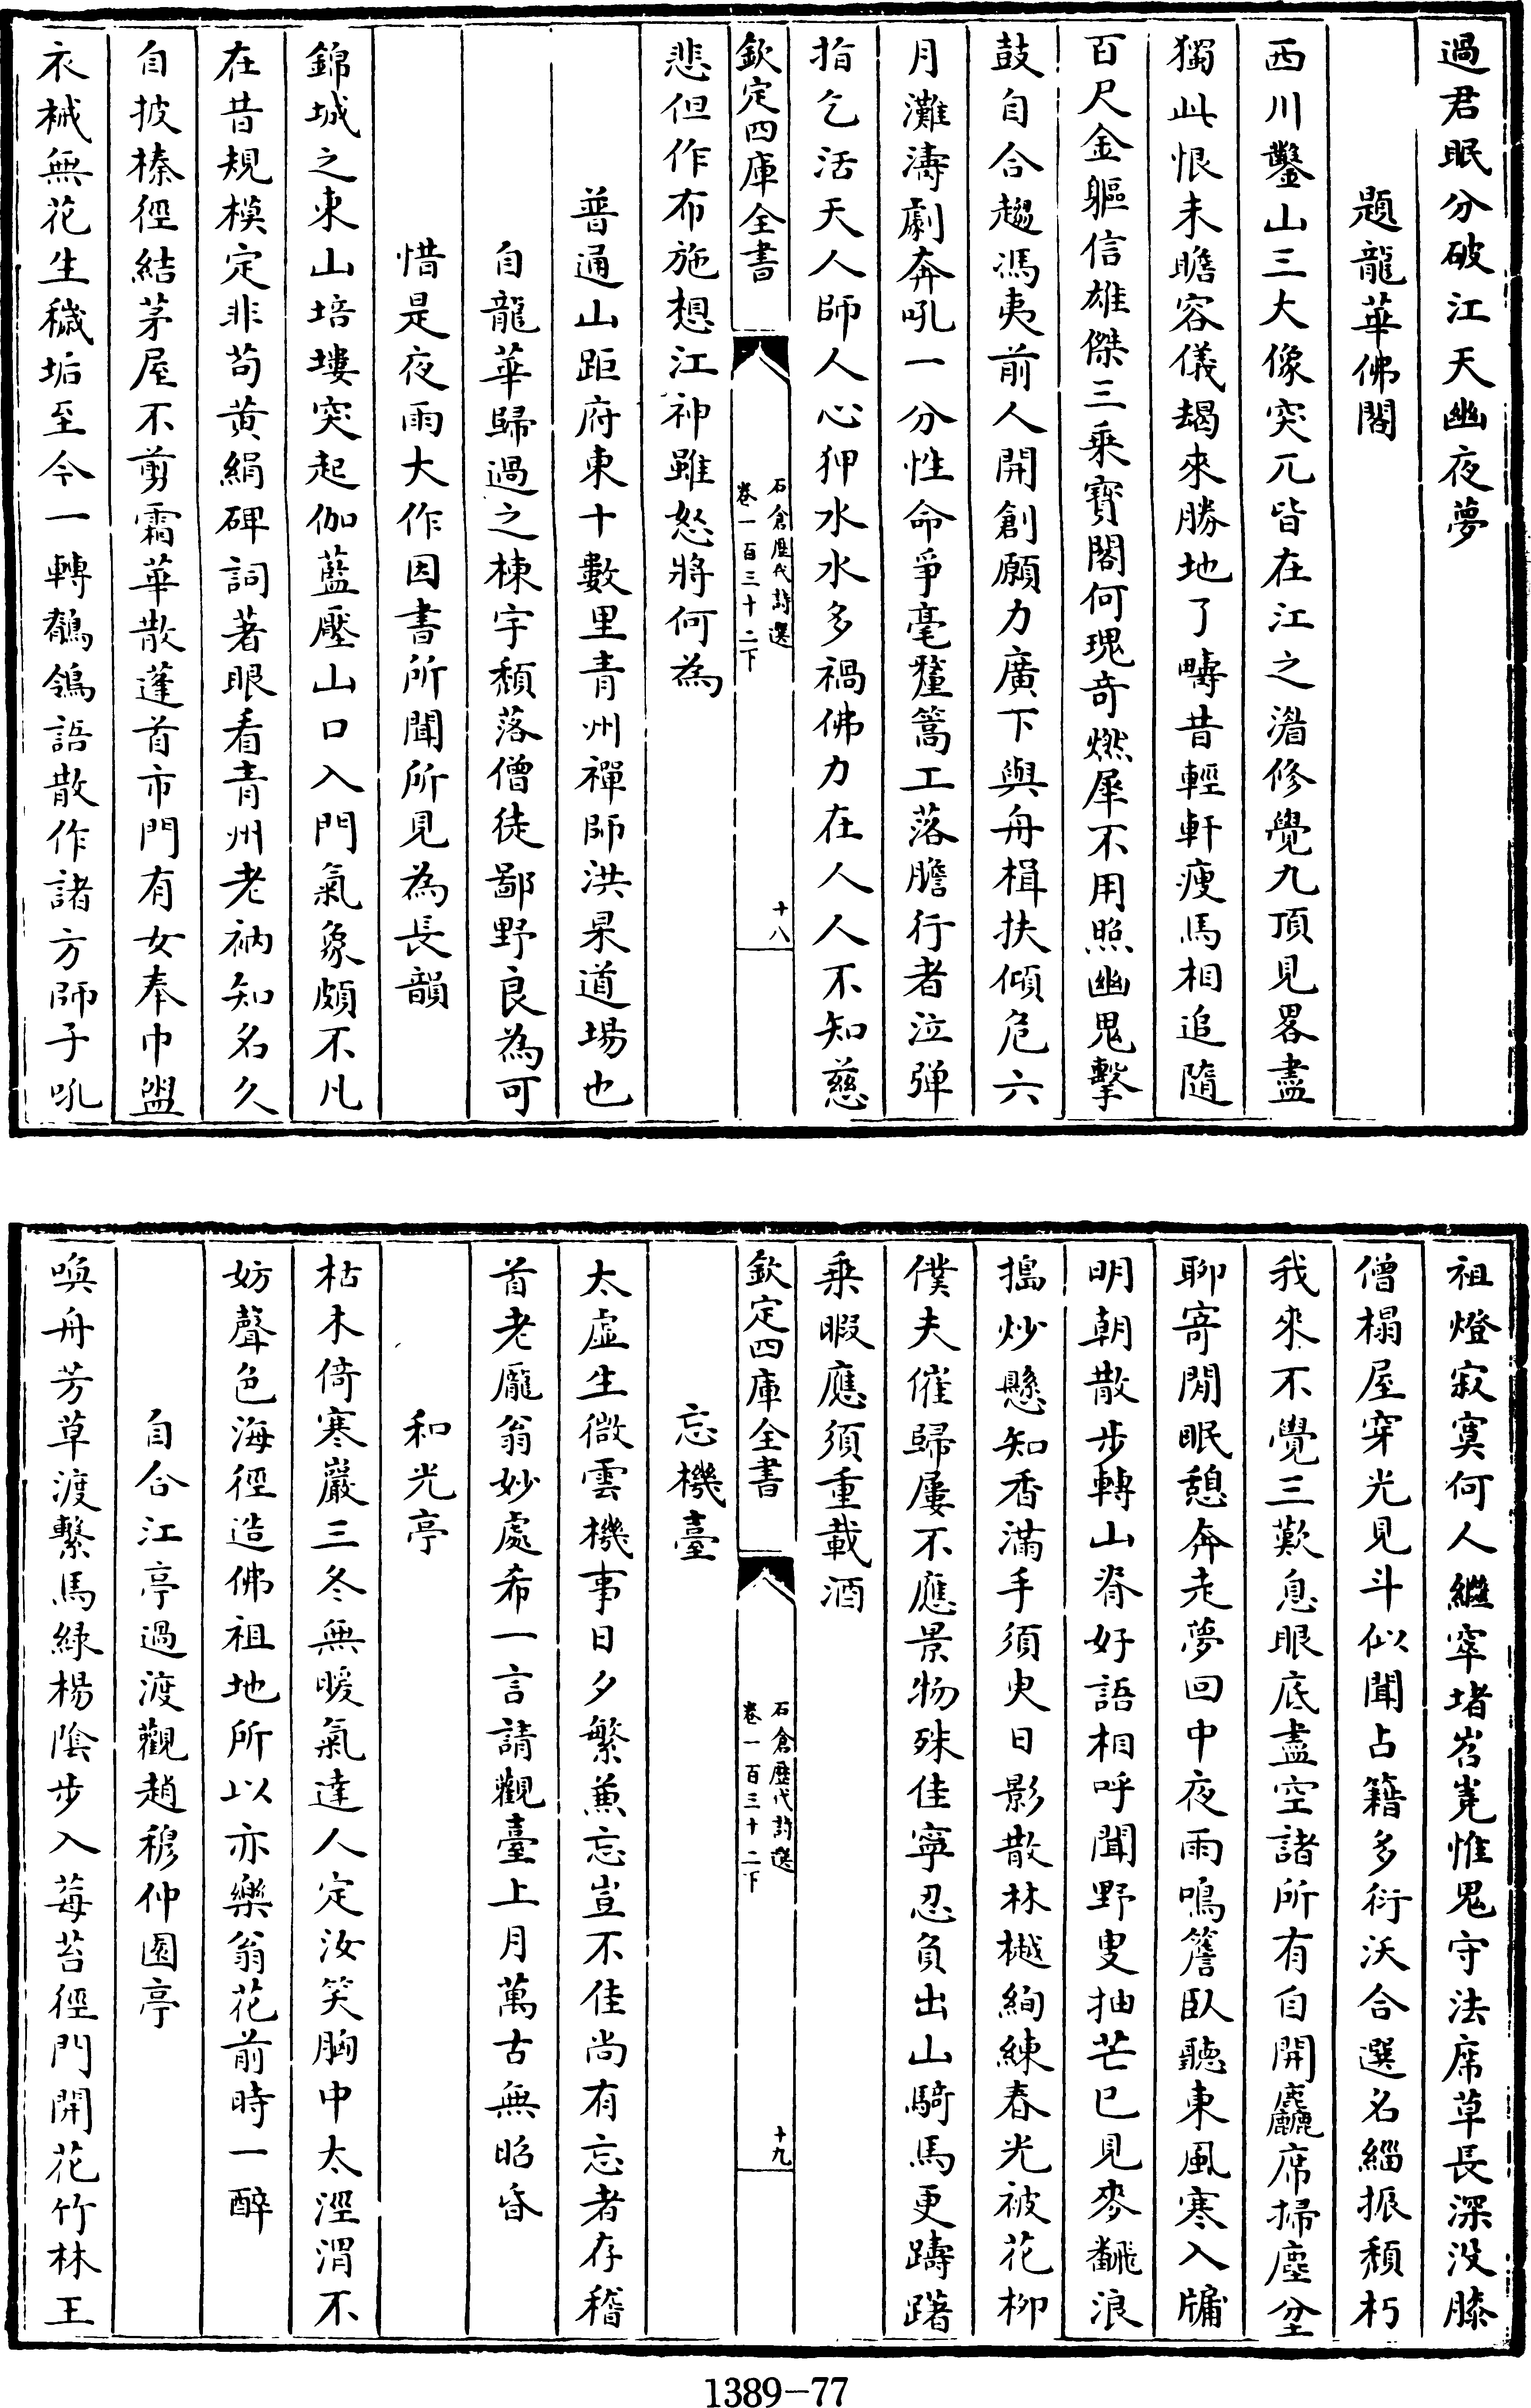 過君眠分破江天幽夜夢
題龍華佛閣
西川鑿山三大像突兀皆在江之湄修覺九頂見畧盡
獨此恨未瞻容儀朅來勝地了疇昔輕軒瘦馬相追隨
百尺金軀信雄傑三乘寳閣何瑰奇燃犀不用照幽鬼擊
鼓自合趨馮夷前人開創願力廣下與舟楫扶傾危六
月灘濤劇奔吼一分性命爭毫釐篙工落膽行者泣彈
指乞活天人師人心狎水水多禍佛力在人人不知慈
欽定四庫全書
石倉歷代詩選
卷一百三十二下
十八
悲但作布施想江神雖怒將何為
普通山距府東十數里青州禪師洪杲道場也
自龍華歸過之棟宇頽落僧徒鄙野良為可
惜是夜雨大作因書所聞所見為長韻
錦城之東山培塿突起伽藍壓山口入門氣象頗不凡
在昔規模定非苟黄絹碑詞著眼看青州老衲知名久
自披榛徑結茅屋不剪霜華散蓬首市門有女奉巾盥
衣椷無花生穢垢至今一轉鶺鴒語散作諸方師子吼
祖燈寂寞何人繼窣堵岧嶤惟鬼守法席草長深没膝
僧榻屋穿光見斗似聞占籍多衍沃合選名緇振頽朽
我來不覺三歎息眼底盡空諸所有自開麤席掃塵坌
聊寄閒眠憩奔走夢回中夜雨鳴簷臥聽東風寒入牖
明朝散步轉山脊好語相呼聞野叟抽芒已見麥飜浪
搗炒懸知香滿手須臾日影散林樾絢練春光被花柳
僕夫催歸屢不應景物殊佳寧忍負出山騎馬更躊躇
乘暇應須重載酒
欽定四庫全書
石倉歷代詩選
卷一百三十二下
十九
忘機臺
太虚生微雲機事日夕繁兼忘豈不佳尚有忘者存稽
首老龎翁妙處希一言請觀臺上月萬古無昭昏
和光亭
枯木倚寒巖三冬無暖氣達人定汝笑胸中太涇渭不
妨聲色海徑造佛祖地所以亦樂翁花前時一醉
自合江亭過渡觀趙穆仲園亭
喚舟芳草渡繫馬緑楊陰步入莓苔徑門開花竹林王
1389-77